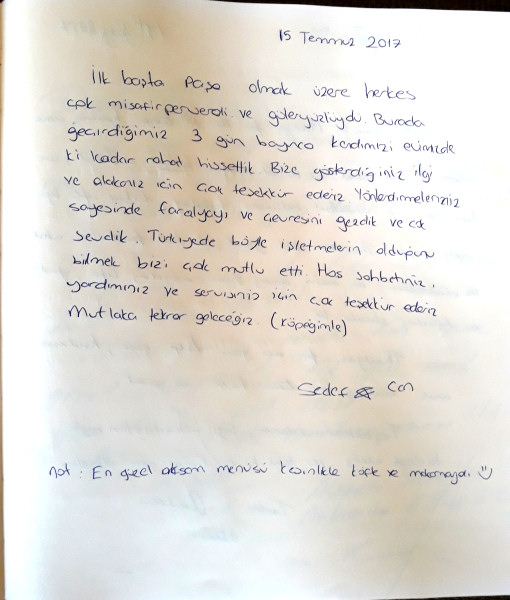 15 Temmuz 2017
İlk başta Paşa olmak üzere herkes
çok misafirperverdi ve güleryüzlüydü. Burada
geçirdiğimiz 3 gün boyunca kendimizi evimizde
ki kadar rahat hissettik. Bize gösterdiğiniz ilgi
ve alakanız için çok teşekkür ederiz. Yönlendirmeleriniz
sayesinde faralyayı ve çevresini gezdik ve çok
sevdik. Türkiyede böyle işletmelerin olduğunu
bilmek bizi çok mutlu etti. Hoş sohbetiniz,
yardımınız ve servisiniz için çok teşekkür ederiz
Mutlaka tekrar geleceğiz. (Köpeğimle)
Sedef Can
Not : En güzel akşam menüsü kesinlikle köfte ve makarnaydı.